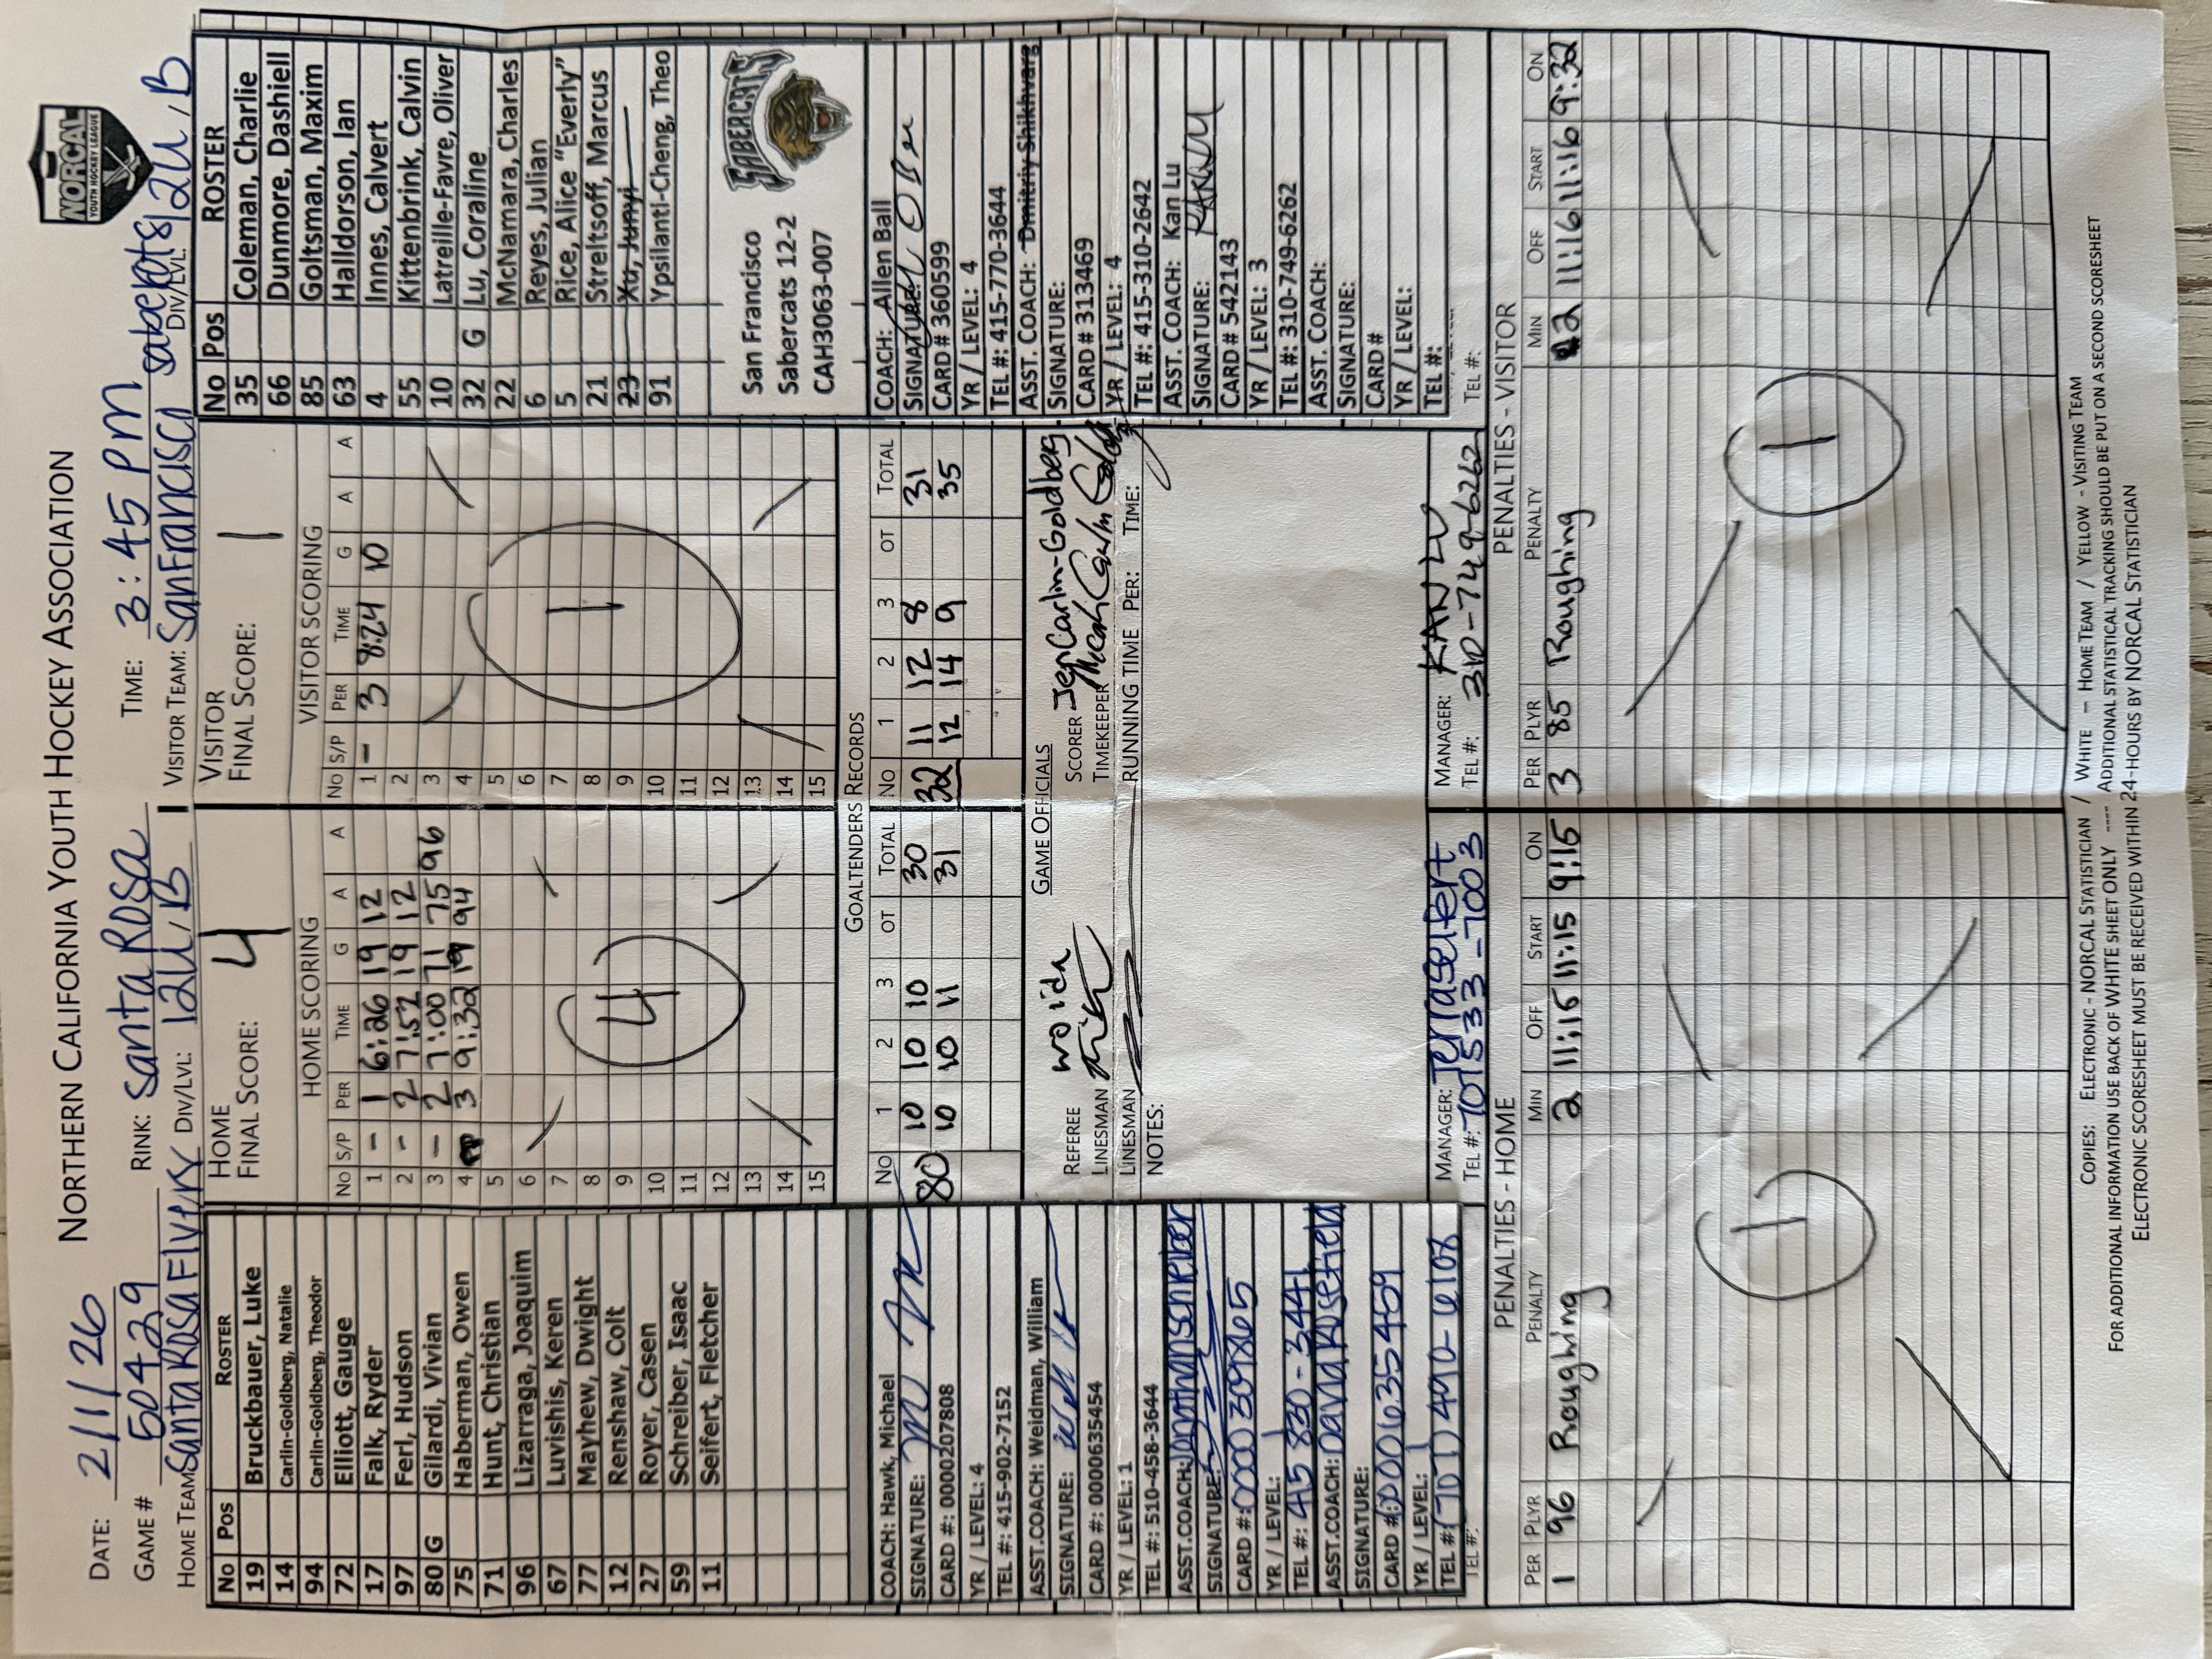 NORTHERN CALIFORNIA YOUTH HOCKEY ASSOCIATION
NORCAL
YOUTH HOCKEY LEAGUE
DATE: 2/1/26
TIME: 3:45 PM
GAME # 50429
RINK: Santa Rosa
HOME TEAM: Santa Rosa Flyers DIV/LVL: 12U, B
VISITOR TEAM: San Francisco Sabercats DIV/LVL: 12U, B
No Pos ROSTER
19 Bruckbauer, Luke
14 Carlin-Goldberg, Natalie
94 Carlin-Goldberg, Theodor
72 Elliott, Gauge
17 Falk, Ryder
97 Ferl, Hudson
80 G Gilardi, Vivian
75 Haberman, Owen
71 Hunt, Christian
96 Lizarraga, Joaquim
67 Luvishis, Keren
77 Mayhew, Dwight
12 Renshaw, Colt
27 Royer, Casen
59 Schreiber, Isaac
11 Seifert, Fletcher
COACH: Hawk, Michael
SIGNATURE:
CARD #: 0000207808
YR / LEVEL: 4
TEL #: 415-902-7152
ASST.COACH: Weidman, William
SIGNATURE:
CARD #: 0000635454
YR / LEVEL: 1
TEL #: 510-458-3644
ASST.COACH: Jonathan Schreiber
SIGNATURE:
CARD #: 0000309865
YR / LEVEL: 1
TEL #: 415 830-3441
ASST.COACH: David Rosefield
SIGNATURE:
CARD #: 000635459
YR / LEVEL: 1
TEL #: (707) 490-6108
TEL #:
HOME
FINAL SCORE: 4
HOME SCORING
No S/P PER TIME G A A
1 - 1 6:26 19 12
2 - 2 7:52 19 12
3 - 2 7:00 71 75 96
4 3 9:32 19 94
5
6
7
8
9
10
11
12
13
14
15
4
VISITOR
FINAL SCORE: 1
VISITOR SCORING
No S/P PER TIME G A A
1 - 3 8:24 10
2
3
4
5
6
7
8
9
10
11
12
13
14
15
1
GOALTENDERS RECORDS
No 1 2 3 OT TOTAL
80 10 10 10 30
10 10 11 31
No 1 2 3 OT TOTAL
32 11 12 8 31
12 14 9 35
GAME OFFICIALS
REFEREE
LINESMAN
LINESMAN
SCORER Jen Carlin-Goldberg
TIMEKEEPER
RUNNING TIME PER: TIME:
NOTES:
MANAGER: Terra Seifert
TEL #: 707 533-7003
MANAGER: KAN LU
TEL #: 310-749-6262
No Pos ROSTER
35 Coleman, Charlie
66 Dunmore, Dashiell
85 Goltsman, Maxim
63 Halldorson, Ian
4 Innes, Calvert
55 Kittenbrink, Calvin
10 Latreille-Favre, Oliver
32 G Lu, Coraline
22 McNamara, Charles
6 Reyes, Julian
5 Rice, Alice "Everly"
21 Streltsoff, Marcus
23 Xu, Junyi
91 Ypsilanti-Cheng, Theo
San Francisco
Sabercats 12-2
CAH3063-007
SABERCATS
COACH: Allen Ball
SIGNATURE:
CARD # 360599
YR / LEVEL: 4
TEL #: 415-770-3644
ASST. COACH: Dmitriy Shikhvarg
SIGNATURE:
CARD # 313469
YR / LEVEL: 4
TEL #: 415-310-2642
ASST. COACH: Kan Lu
SIGNATURE: KAN LU
CARD# 542143
YR / LEVEL: 3
TEL #: 310-749-6262
ASST. COACH:
SIGNATURE:
CARD #
YR / LEVEL:
TEL #:
TEL #:
PENALTIES - HOME
PER PLYR PENALTY MIN OFF START ON
1 96 Roughing 2 11:15 11:15 9:15
1
PENALTIES - VISITOR
PER PLYR PENALTY MIN OFF START ON
3 85 Roughing 2 11:16 11:16 9:32
1
COPIES: ELECTRONIC - NORCAL STATISTICIAN / WHITE – HOME TEAM / YELLOW - VISITING TEAM
FOR ADDITIONAL INFORMATION USE BACK OF WHITE SHEET ONLY ---- ADDITIONAL STATISTICAL TRACKING SHOULD BE PUT ON A SECOND SCORESHEET
ELECTRONIC SCORESHEET MUST BE RECEIVED WITHIN 24-HOURS BY NORCAL STATISTICIAN